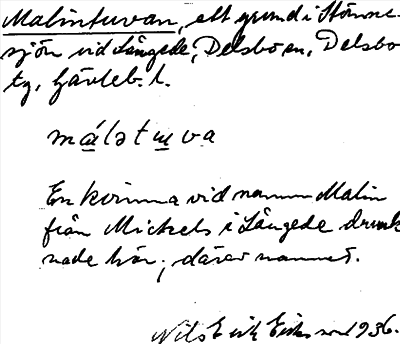 Malintuvan, ett grund i Stömne-
sjön vid Långede, Delsbo sn, Delsbo
tg, Gävleb. l.
málətuva
En kvinna vid namn Malin
från Mickels i Långede drunk
nade här; därav namnet.
Nils Erik Eriksson 1936.